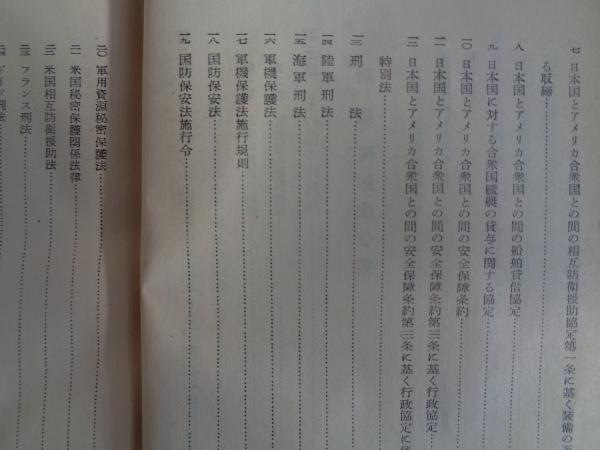 七 日本国とアメリカ合衆国との間の相互防衛援助協定第一条に基く装備の
る取締
八 日本国とアメリカ合衆国との間の船舶貸借協定
九 日本国に対する合衆国艦艇の貸与に関する協定
一〇 日本国とアメリカ合衆国との間の安全保障条約
一一 日本国とアメリカ合衆国との間の安全保障条約第三条に基く行政協定
一二 日本国とアメリカ合衆国との間の安全保障条約第三条に基く行政協定に
特別法
一三 刑 法
一四 陸軍刑法
一五 海軍刑法
一六 軍機保護法
一七 軍機保護法施行規則
一八 国防保安法
一九 国防保安法施行令
二〇 軍用資源秘密保護法
二一 米国秘密保護関係法律
二二 米国相互防衛援助法
二三 フランス刑法
二四 ドイツ刑法